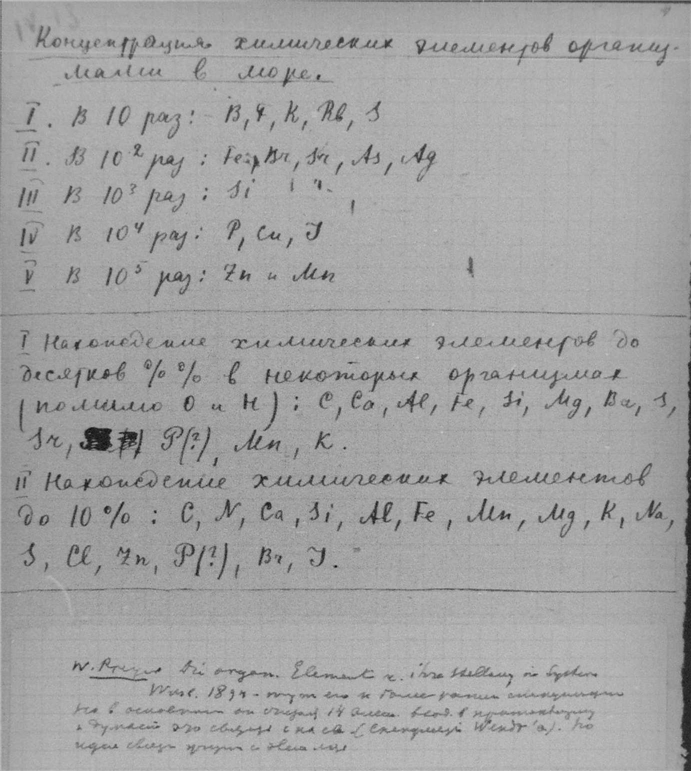 Концентрация химических элементов организ-
мами в море.
I. В 10 раз: B, F, K, Rb, S
II. В 10² раз: Fe, Br, Sr, As, Ag
III В 10³ раз: Si
IV В 10⁴ раз: P, Cu, J
V В 10⁵ раз: Zn и Mn
I Нахождение химических элементов до
десятков %% в некоторых организмах
(помимо O и H): C, Ca, Al, Fe, Si, Mg, Ba, S,
Sr, P(?), Mn, K.
II Нахождение химических элементов
до 10%: C, N, Ca, Si, Al, Fe, Mn, Mg, K, Na,
S, Cl, Zn, P(?), Br, J.
W. Preyer Die organ. Element u. ihre Stellung in System
Wies. 1894